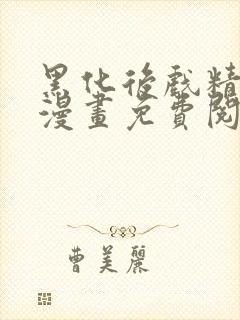 黑化後戲精
漫畫免費閱
曹美麗